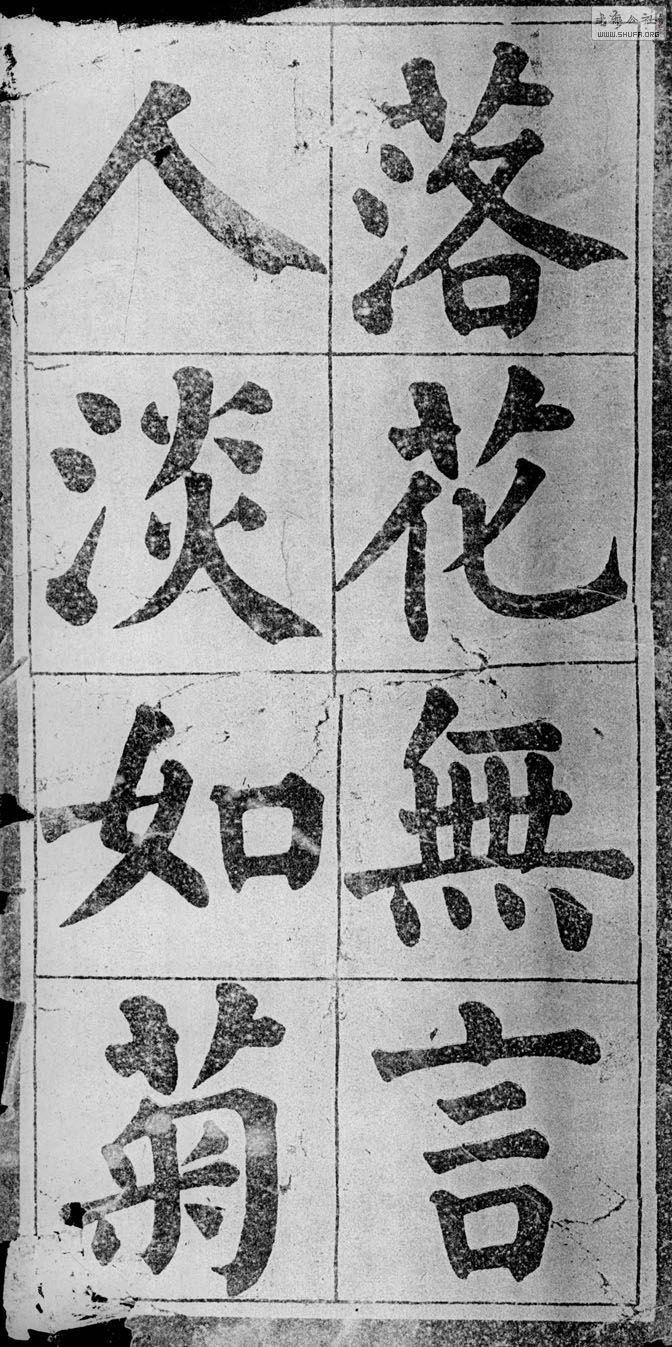 落花無言
人淡如菊
WWW.SHUFA.ORG